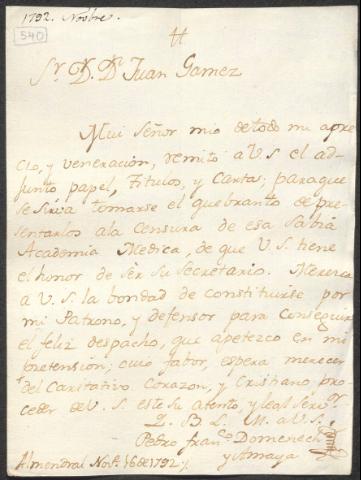 1792. Novbre.
540
Sr. Dn. Dn. Juan Gamez
Mui Señor mio de todo mi apre
cio, y veneracion, remito a V.S el ad-
junto papel, Titulos, y Cartas; para que
se sirva tomarse el quebranto de pre-
sentarlos a la Censura de esa Sabia
Academia Medica, de que V.S. tiene
el honor de ser su Secretario. Merezca
a V.S. la bondad de constituirse por
mi Patrono, y defensor para conseguir
el feliz despacho, que apetezco en mi
pretension; cuio fabor, espera merecer
del Caritativo Corazon, y Cristiano pro-
ceder de V.S. este su atento, y leal servr.
Q. B. L. M. a V.S.
Pedro Franco. Domenech
y Amaya
Almendral Nove. 16 de 1792